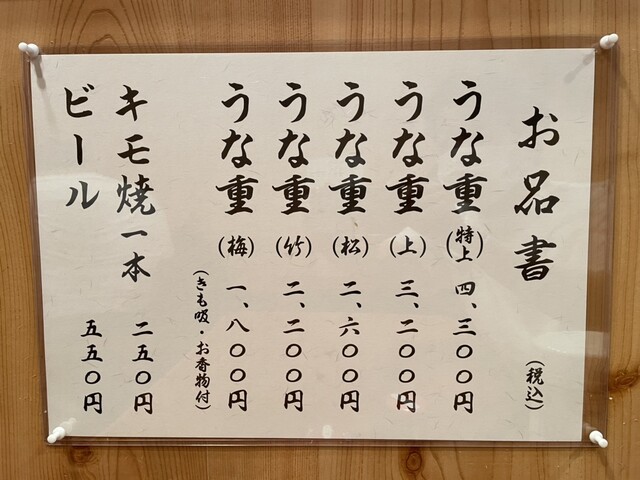 お品書
（税込）
うな重（特上） 四、三〇〇円
うな重（上） 三、二〇〇円
うな重（松） 二、六〇〇円
うな重（竹） 二、二〇〇円
うな重（梅） 一、八〇〇円
（きも吸・お香物付）
キモ焼一本 二五〇円
ビール 五五〇円